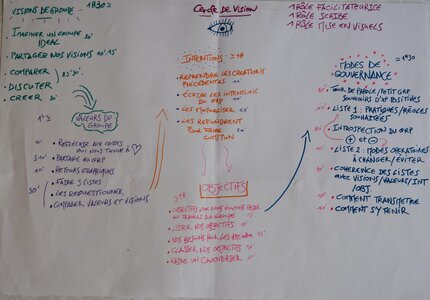 VISIONS DE GROUPE 1H30
IMAGINER UN GROUPE IDÉAL 20'
PARTAGER NOS VISIONS 10'-15'
COMPARER
DISCUTER
CRÉER 30'
VALEURS DU GROUPE
REFLÉCHIR AUX CHOSES QUI NOUS TIENNE À
10' PARTAGE AU GRP
10' RETOURS GRAPHIQUES
FAIRE 3 LISTES
30' LES REQUESTIONNER
COMPARER VALEURS ET VISIONS
CERCLE DE VISION
INTENTIONS 1H
REPRENDRE LES CRÉATIONS PRÉCÉDENTES
ÉCRIRE LES INTENTIONS DU GRP
LES MUTUALISER
LES REFONDRENT POUR FAIRE COMMUN
OBJECTIFS
OBJECTIFS QUE NOUS VOULONS FAIRE AU TRAVERS DU GROUPE
LISTER NOS OBJECTIFS
NOS BESOINS POUR LES ATTEINDRE
CLASSER NOS OBJECTIFS
FAIRE UN CALENDRIER
1 RÔLE FACILITATEURICE
1 RÔLE SCRIBE
1 RÔLE MISE EN VISUELS
MODES DE GOUVERNANCE 1H30
TOUR DE PAROLE/PETIT GRP SOUVENIRS D'EXP POSITIVES
LISTE 1: PRATIQUES/RÈGLES SOUHAITÉES
INTROSPECTION DU GRP
+ ET -
LISTE 2: MODES OPÉRATOIRES À CHANGER/ÉVITER
COHÉRENCE DES LISTES AVEC VISIONS/VALEURS/INT/OBJ.
10' COMMENT TRANSMETTRE
10' COMMENT S'Y TENIR